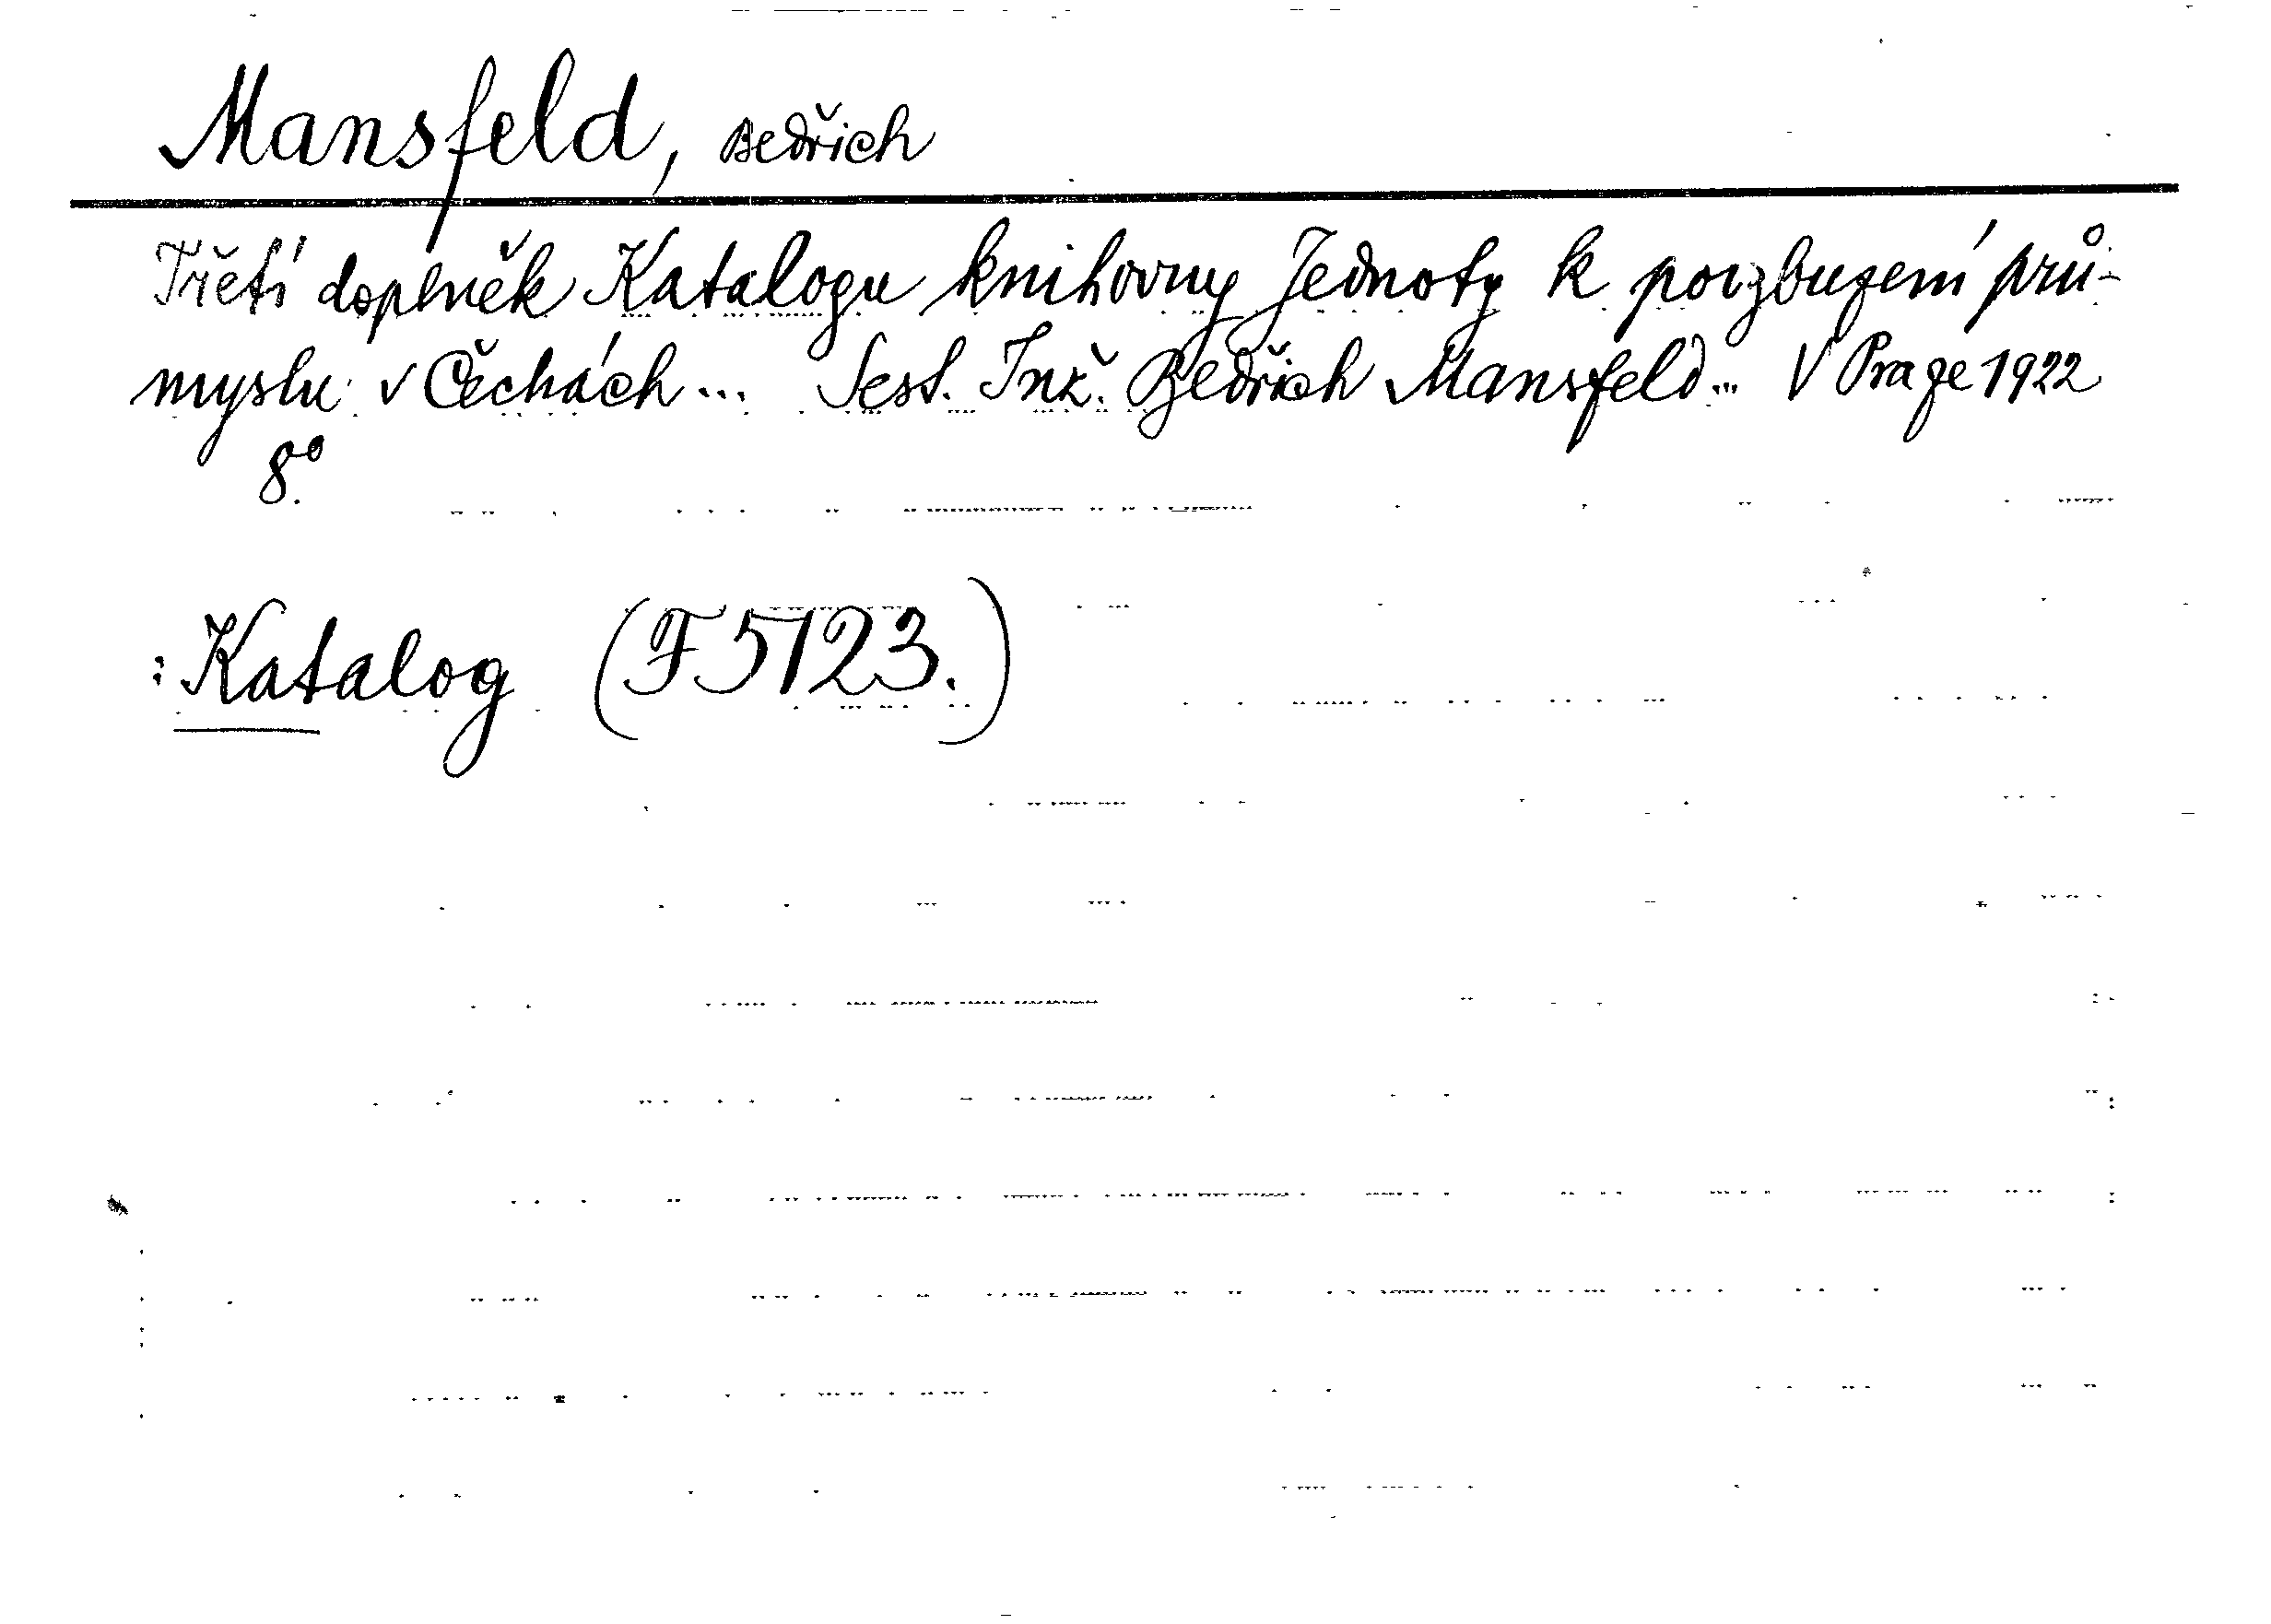 Mansfeld, Bedřich
Třetí doplněk Katalogu knihovny Jednoty k povzbuzení prů-
myslu v Čechách... Sest. Inž. Bedřich Mansfeld... V Praze 1922
8°.
:Katalog (F5123.)